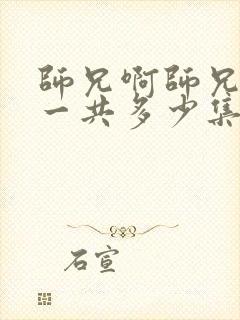 師兄啊師兄
一共多少集
石宣